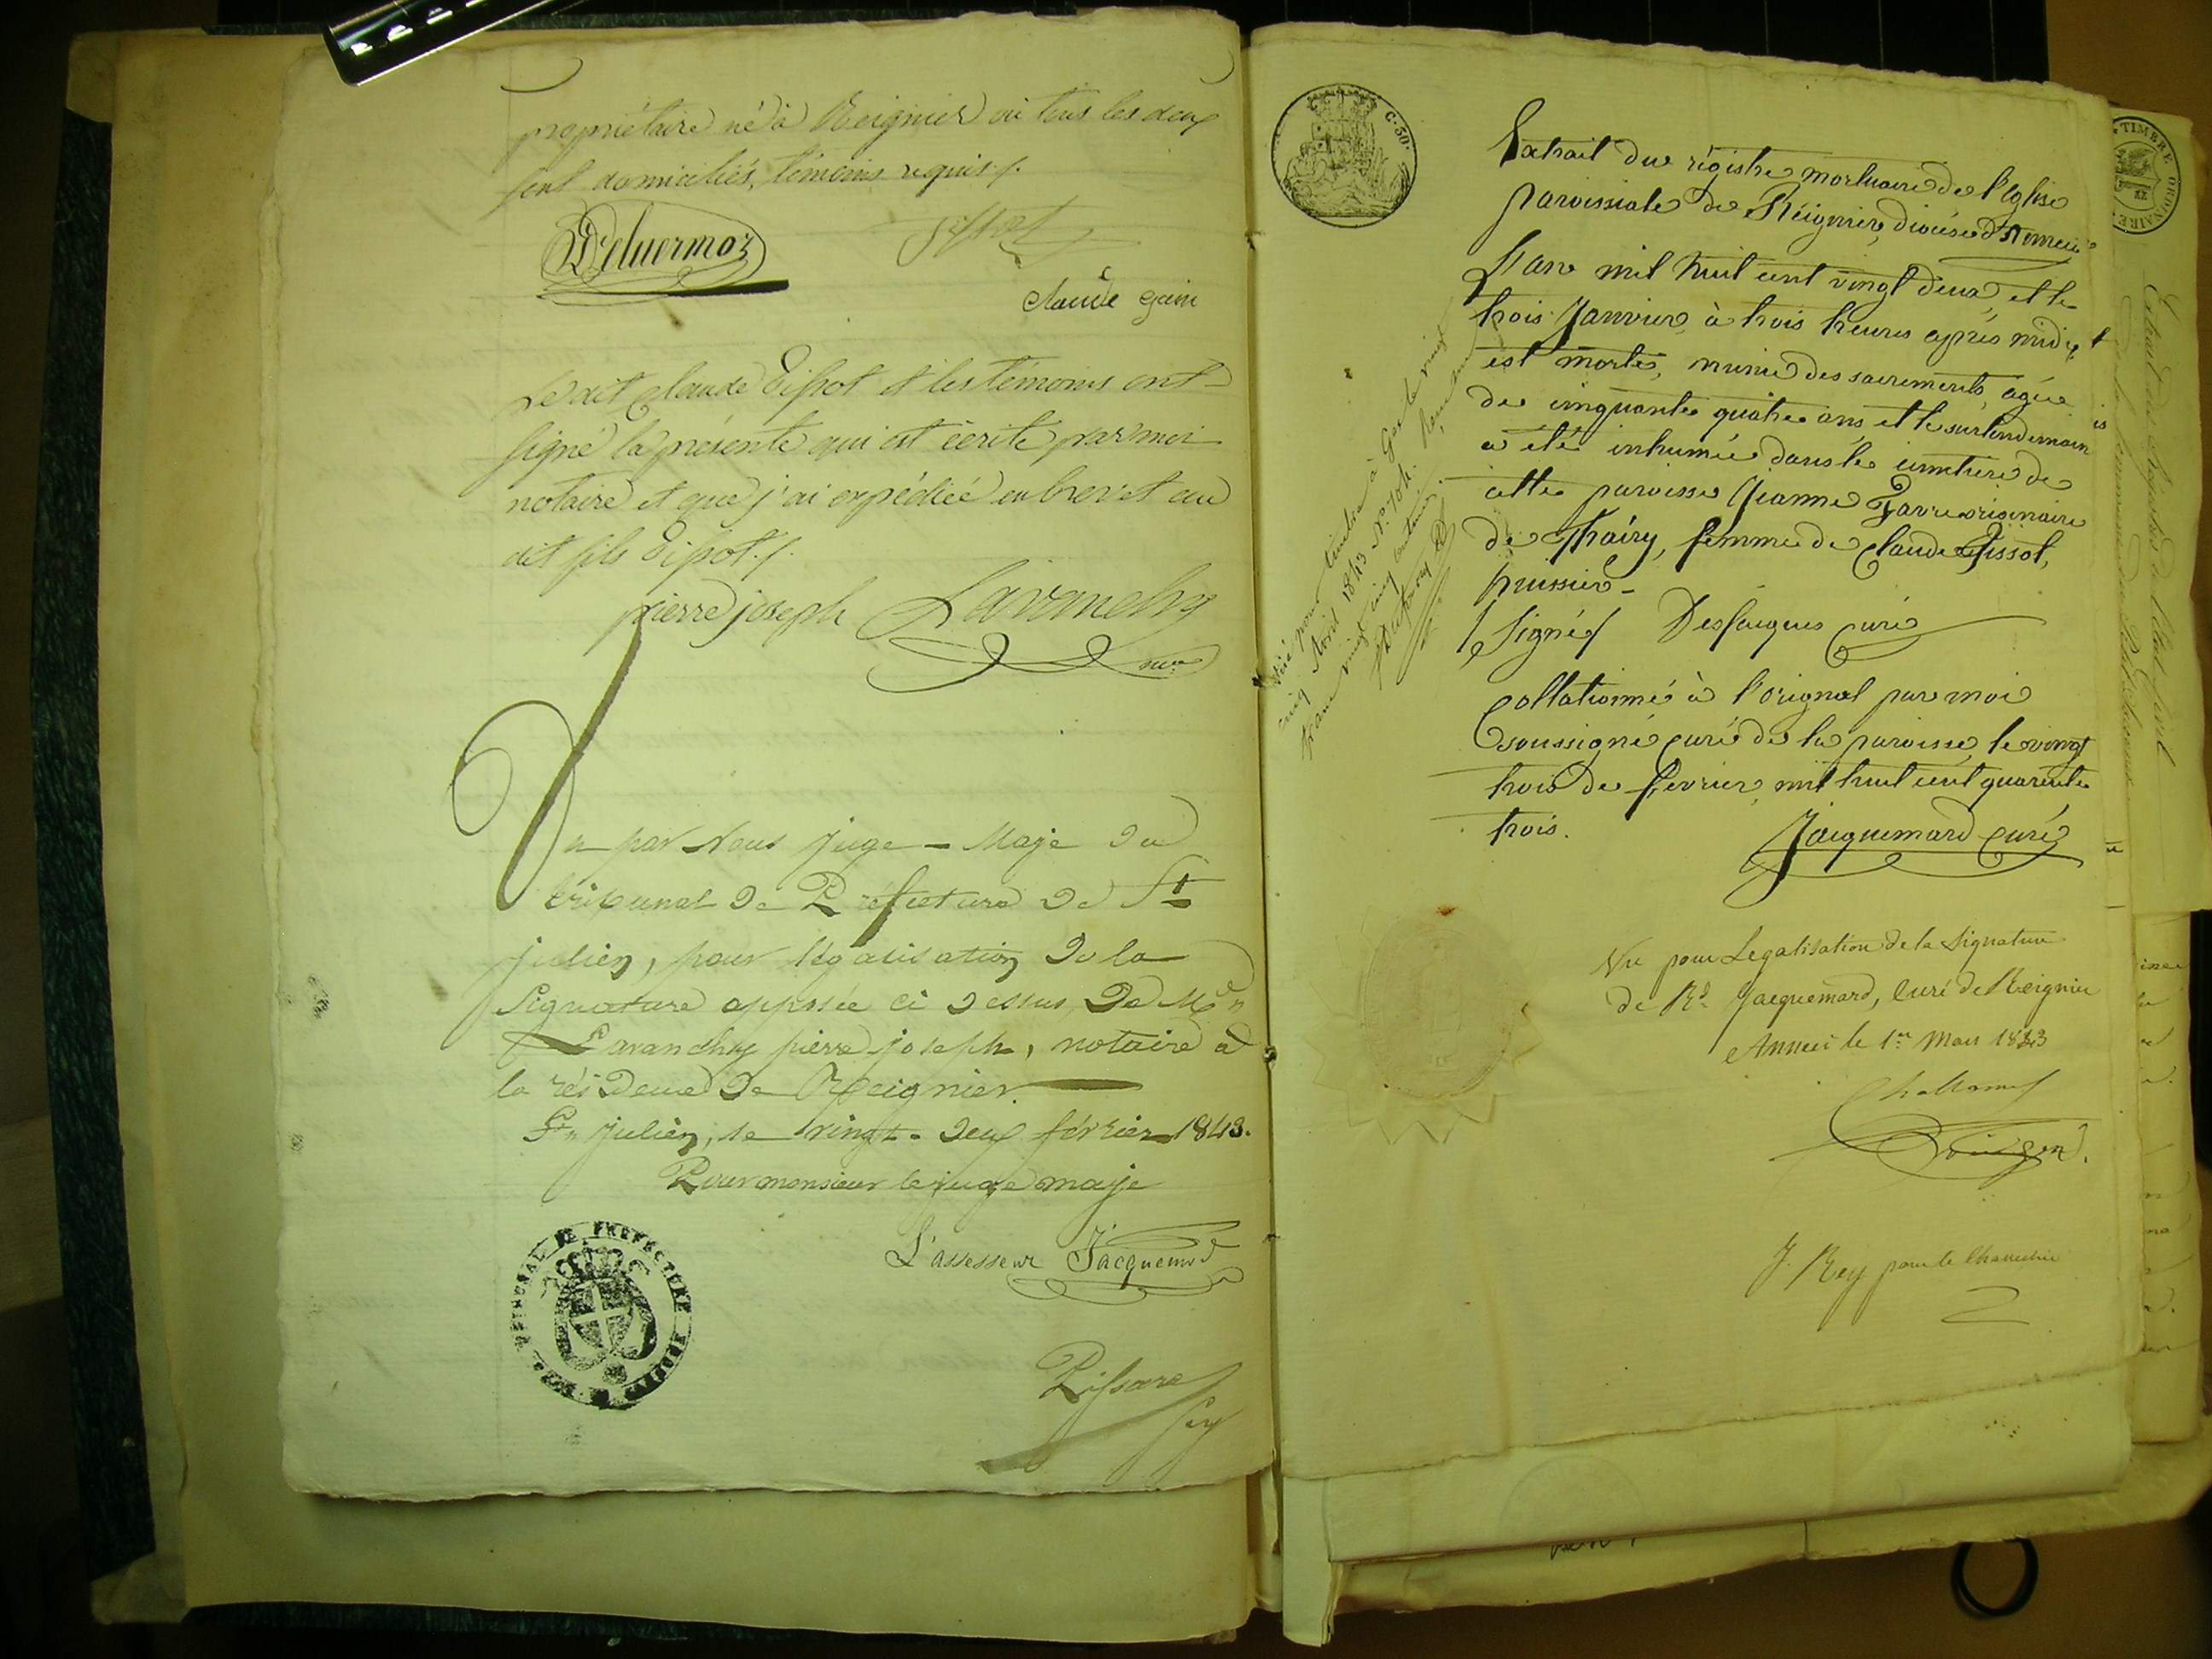 propriétaire né à Reignier où tous les deux
sont domiciliés, témoins requis /.
Deluermoz
Tissot
Claude gain
Le dit Claude Tissot et les témoins ont
signé la présente qui est écrite par moi
notaire et que j'ai expédiée en brevet au
dit fils Tissot /.
pierre joseph Lavanchy
nre
Vu par Nous juge-Maje du
tribunal de Préfecture de St
julien, pour légalisation de la
Signature apposée ci dessus, de Me
Lavanchy pierre joseph, notaire à
la résidence de Reignier.
St julien, le vingt-deux février 1843.
Pour monsieur le juge maje
L'assesseur Jacquemod
Pissard
TRIBUNAL DE PREFECTURE
C. 50.
Extrait du régistre mortuaire de l'Eglise
paroissiale de Reignier, diocèse d'Annecie
L'an mil huit cent vingt deux et le
trois Janvier à trois heures après midi,
est morte, munie des sacrements, agée
de cinquante quatre ans et le surlendemain
a été inhumée dans le cimetière de
cette paroisse Jeanne Favre originaire
de Thairy, femme de Claude Tissot,
huissier.
/ Signé / Desjacques curé
Collationné à l'orignal par moi
soussigné curé de la paroisse, le vingt
trois de fevrier mil huit cent quarente
trois.
Jacquemard Curé
Visé pour timbre à Gex le vingt
cinq Avril 1843 No.
franc vingt cinq centimes.
Vu pour Legalisation de la Signature
de Rd. Jacquemard, Curé de Reignier
Annecі le 1er Mars 1843
J. Rey pour le Chancelier
TIMBRE ORDINAIRE
Extrait des Régistres de l'Etat Civil